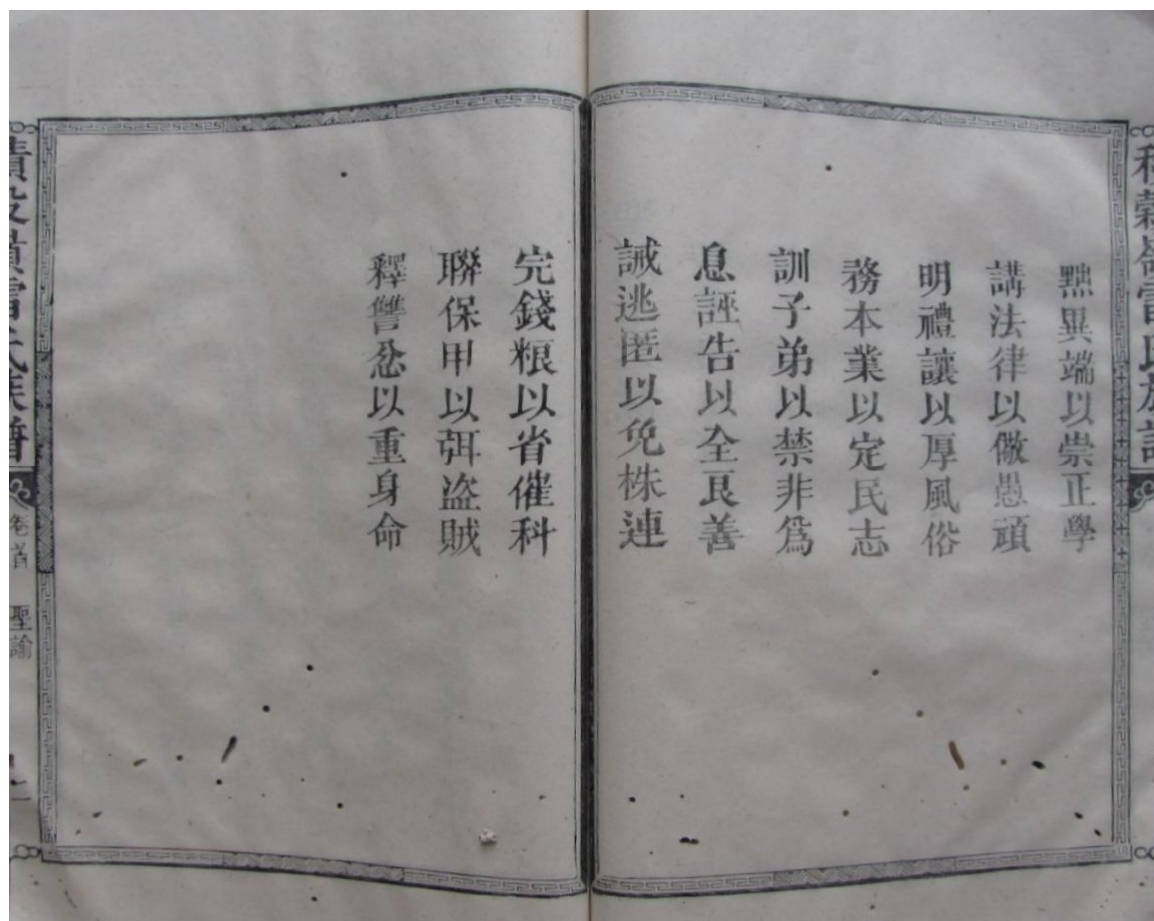 黜異端以崇正學
講法律以儆愚頑
明禮讓以厚風俗
務本業以定民志
訓子弟以禁非爲
息誣告以全良善
誡逃匿以免株連
完錢粮以省催科
聯保甲以弭盜賊
釋讐忿以重身命
積穀嶺雷氏族譜
卷首 聖諭